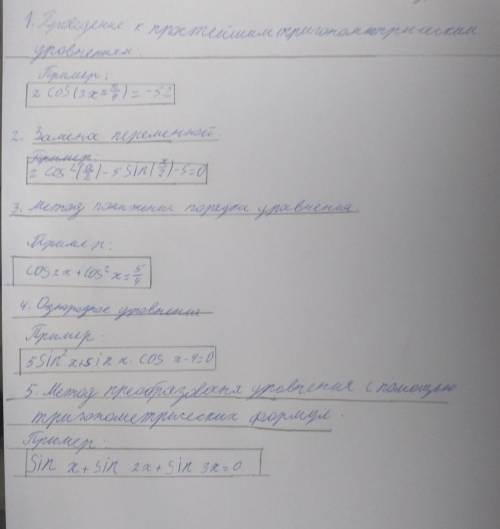 1. Приведение к простейшим тригонометрическим
уравнениям.
Пример:
2 cos(3x ± π/4) = -√2
2. Замена переменной
Пример:
2 cos²(x/2) - 5 sin(x/2) - 5 = 0
3. Метод понижения порядка уравнения
Пример:
cos 2x + cos² x = 5/4
4. Однородное уравнения
Пример:
5 sin² x + sin x · cos x - 4 = 0
5. Метод преобразованя уровнения с помощью
тригонометрических формул.
Пример:
sin x + sin 2x + sin 3x = 0